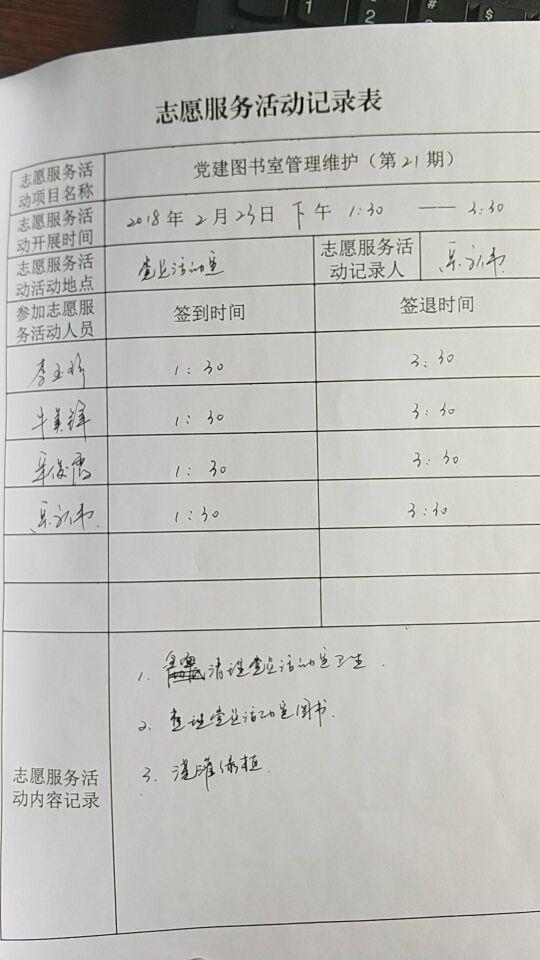 志愿服务活动记录表
志愿服务活
动项目名称
党建图书室管理维护（第21期）
志愿服务活
动开展时间
2018年2月23日下午1:30——3:30
志愿服务活
动活动地点
党员活动室
志愿服务活
动记录人
参加志愿服
务活动人员
签到时间
签退时间
李玉珍
1:30
3:30
牛美锋
1:30
3:30
1:30
3:30
1:30
3:30
志愿服务活
动内容记录
1.清理党员活动室卫生.
2.整理党员活动室图书.
3.浇灌绿植.